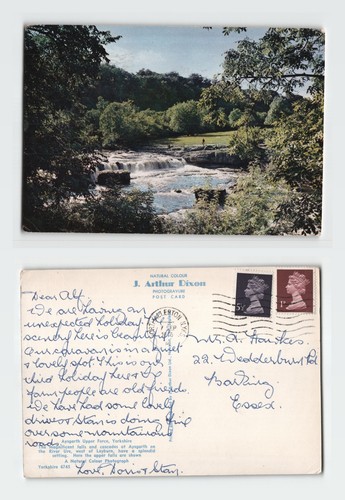 NATURAL COLOUR
J. Arthur Dixon
PHOTOGRAVURE
POST CARD
Dear Alf,
We are having an
unexpected holiday
scenery here is beautiful
Our caravan is in a great
& lovely spot. This is our
third holiday here & the
farm people are old friends.
We have had some lovely
drives & Stan is doing fine
over some mountainous
roads.
Love, Doris & Stan.
Aysgarth Upper Force, Yorkshire
falls and cascades at Aysgarth on
the River Ure, east of Leyburn, have a splendid
setting. Here the upper falls are shown
A Natural Colour Photograph
Yorkshire 6785
Mr. A. Hawkes.
22, Wedderburn Rd
Barking
Essex.